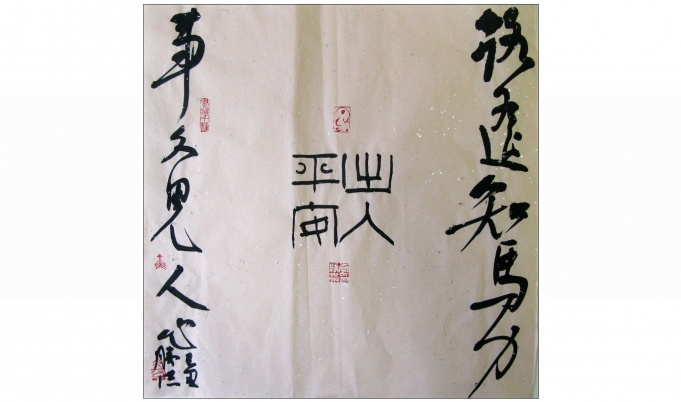 路遥知馬力
出入
平安
事久見人心